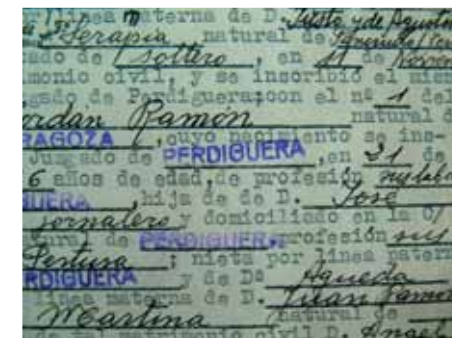 por línea materna de D. Justo y de Agustina
Serapia natural de
ado de soltero, en 11 de Noviem
monio civil, y se inscribió el mism
gado de Perdiguera; con el nº 1 del
ordan Ramón natural d
RAGOZA, cuyo nacimiento se ins-
Juzgado de PERDIGUERA, en 31 de
6 años de edad, de profesión
GUERA, hija de de D. José
jornalero y domiciliado en la C/
tural de PERDIGUERA profesión sus
Pertusa; nieta por línea patern
RDIGUERA y de Dª Agueda
línea materna de D. Juan Ramon
Martina natural de
matrimonio civil D. Angel